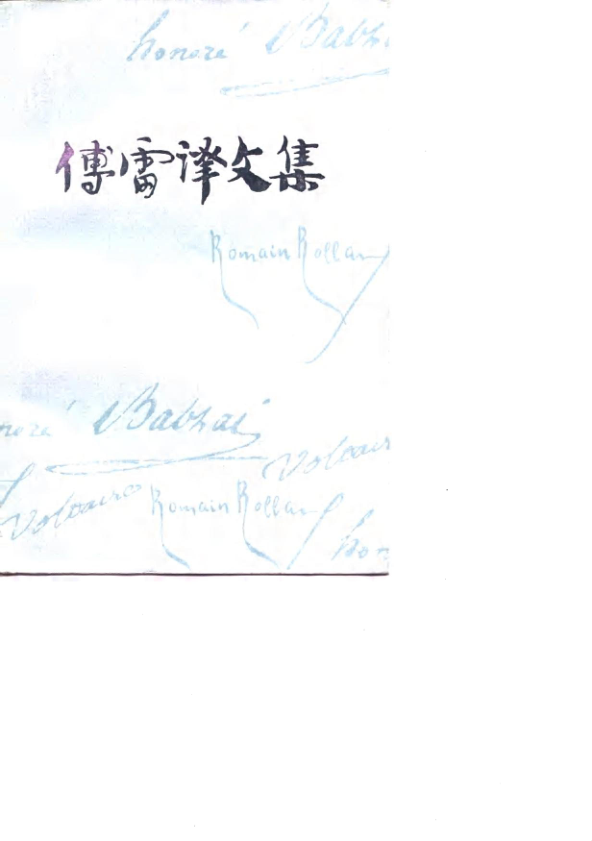 honoré Balzac
傅雷译文集
Romain Rolland
honoré Balzac
Voltaire
Voltaire
Romain Rolland
hon